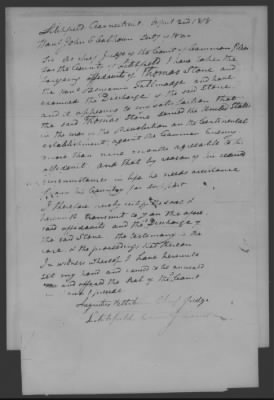 Litchfield Connecticut April 2nd 1818
Hon John C Calhoun Secty of War
Sir As Chief Judge of the Court of Common Pleas
for the County of Litchfield I have taken the
foregoing affidavits of Thomas Stone and
the Hon Benjamin Tallmadge and have
examined the Discharge of the said Stone
and it appears to my satisfaction that
the said Thomas Stone served the United States
in the war of the Revolution on the Continental
establishment, against the Common Enemy
more than nine months agreeable to his
affidavit and that by reason of his reduced
circumstances in life he needs assistance
from his Country for support
I therefore certify and
herewith transmit to you the
said affidavits and the Discharge of
the said Stone the testimony in the
case & the proceedings had thereon
In witness whereof I have hereunto
set my hand and caused to be annexed
and affixed the Seal of the Court
Augustus Pettibone Chief Judge
Litchfield County Court